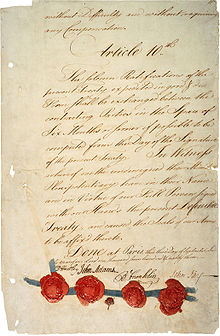 without Difficulty and without requiring
any Compensation.
Article 10th
The solemn Ratifications of the
present Treaty expedited in good & due
Form shall be exchanged between the
contracting Parties in the Space of
Six Months or sooner if possible to be
computed from the Day of the Signature
of the present Treaty. In Witness
whereof we the undersigned their
Ministers Plenipotentiary have in their Name
and in Virtue of our Full Powers
with our Hands the present Definitive
Treaty, and caused the Seals of our Arms
to be affixed thereto.
Done at Paris, this third Day of September
John Adams B Franklin John Jay